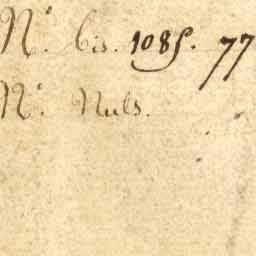 N.° bis. 1085. 77
N.° Nuls.